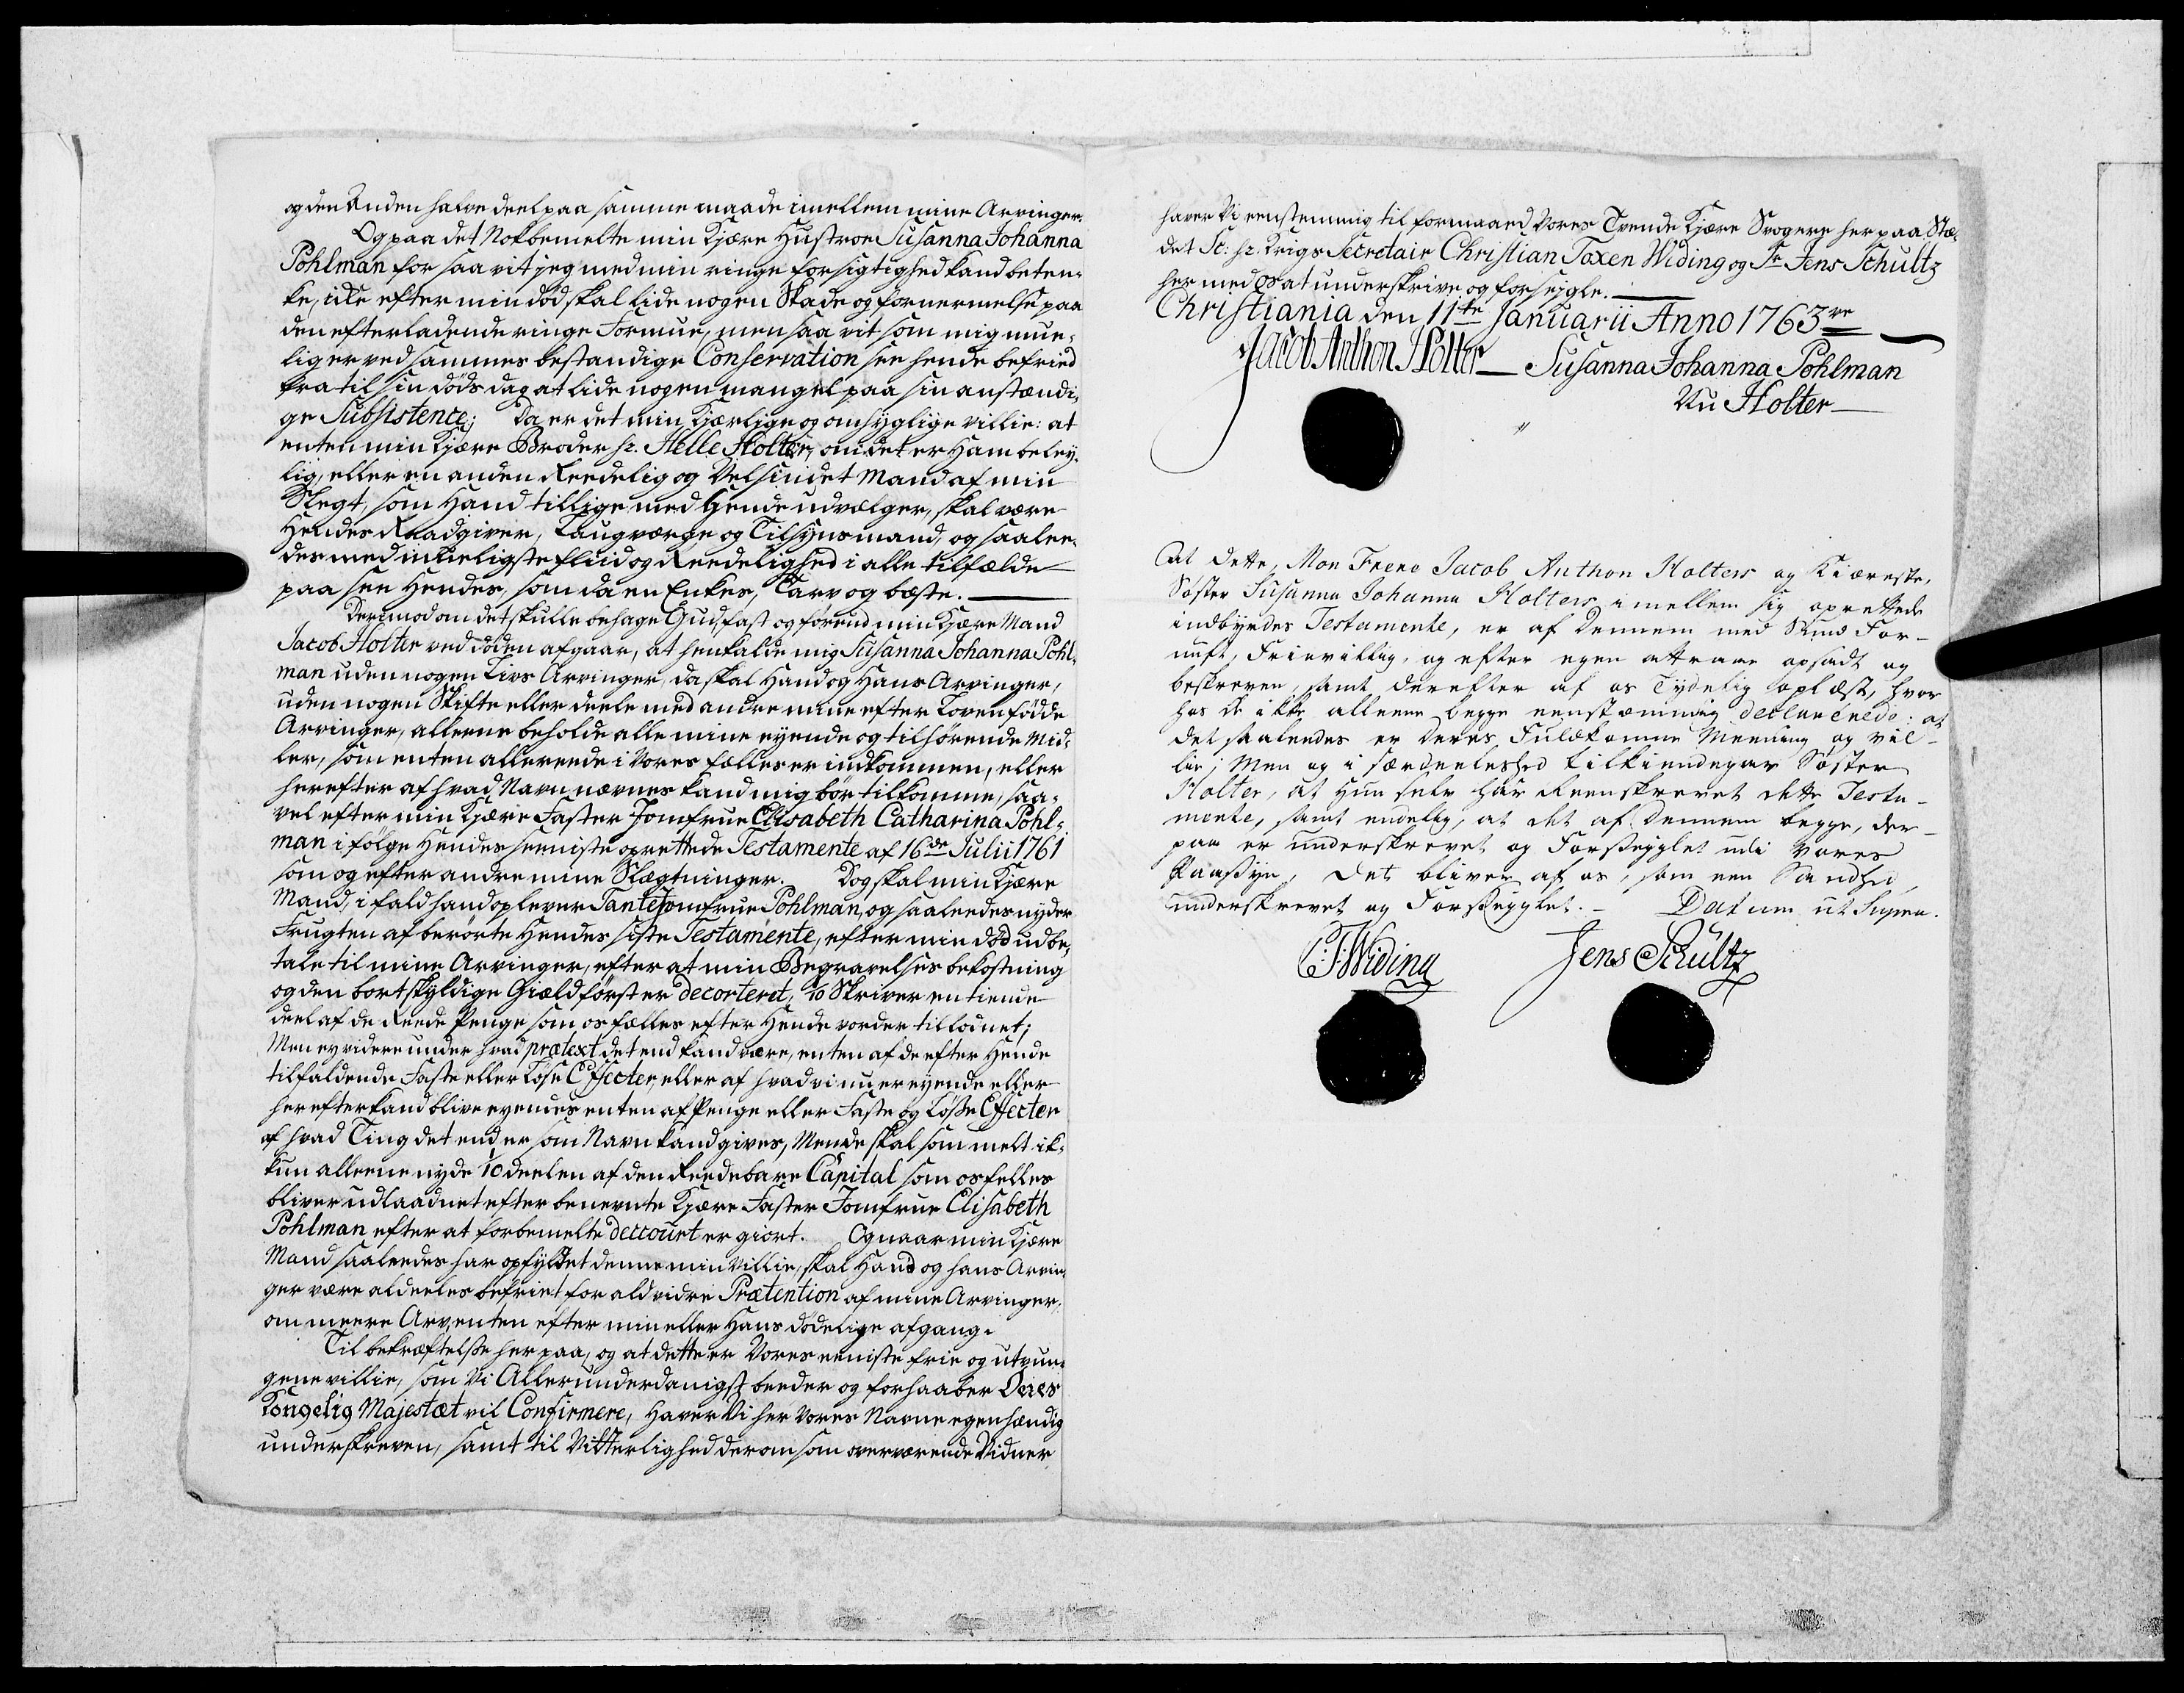 og den Anden halve deel paa samme maade imellem mine Arvinger.
Og paa det Nokbemelte min Kjære Hustroe Susanna Johanna
Pohlman for saa vit jeg med min ringe forsigtighed kand beten-
ke, icke efter min død skal lide nogen Skade og fornermelse paa
den efterladende ringe Formue, men saa vit som mig mue-
lig er ved sammes bestandige Conservation see hende befried
fra til sin døds dag at lide nogen mangel paa sin anstændi-
ge Subsistence; Da er det min Kjærlige og omhyglige villie: at
enten min Kjære Broder hr. Helle Holter, om det er Ham beley-
lig, eller en anden Reedelig og Velsindet Mand af min
Slegt, som Hand tillige med Hende udvælger, skal være
Hendes Raadgiver, Laugværge og Tilsynsmand, og saalee-
des med mueligste fliid og Reedelighed i alle tilfælde
paa see Hendes, som da en Enkes, Tarv og bæste.
Derimod om det skulle behage Gud, fast og førend min Kjære Mand
Jacob Holter ved døden afgaar, at henkalde mig Susanna Johanna Pohl-
man uden nogen Livs Arvinger, da skal Hand og Hans Arvinger,
uden nogen Skifte eller deele med andre mine efter Loven fødde
Arvinger, alleene beholde alle mine eyende og tilhørende Mid-
ler, som enten allereede i Vores fælles er indkommen, eller
herefter af hvad Navn nævnes kand mig bør tilkomme, saa-
vel efter min Kjære Faster Jomfrue Elisabeth Catharina Pohl-
man i følge Hendes seeniste oprettede Testamente af 16de Julii 1761
som og efter andre mine Slægtninger. Dog skal min Kjære
Mand, i fald hand oplever Tante Jomfrue Pohlman, og saaleedes nyder
Frugten af berørte Hendes siste Testamente, efter min død udbe-
tale til mine Arvinger, efter at min Begravelses bekostning
og den bortskyldige Giæld først er decorteret, 10 Skriver en tiende
deel af de Reede Penge som os fælles efter Hende vorder tillodnet;
Men ey videre under hvad prætext det end kand være, enten af de efter Hende
tilfaldende Faste eller Løse Effecter, eller af hvad vi nu er eyende eller
herefter kand blive eyendes enten af Penge eller Faste og Løsse Effecter
af hvad Ting det end er som Navn kand gives, Mende skal som melt ik-
kun alleene nyde 1/10 deelen af den Reedebare Capital som os felles
bliver udlaadnet efter benevnte Kjære Faster Jomfrue Elisabeth
Pohlman efter at forbemelte deccourt er giort. Og naar min Kjære
Mand saaleedes har opfyldet denne min Villie, skal Hand og hans Arvin-
ger være aldeeles befriet for ald vidre Prætention af mine Arvinger,
om meere Arv, enten efter min eller Hans dødelige afgang.
Til bekræftelsse her paa, og at dette er Vores eeniste frie og utvun-
gene villie, som Vi Allerunderdanigst beeder og forhaaber Deres
Kongelig Majestæt vil Confirmere, Haver Vi her Vores Navne egenhændig
underskreven, samt til Vitterlighed derom som overværende Vidner
haver Vi eenstemmig til formaaed Vores Tvende Kjære Svogere her paa Stæ-
det Sc: hr. Krigs Secretair Christian Taxen Widing og Sr Jens Schultz
her med os at underskrive og forseygle.
Christiania den 11te Januarii Anno 1763ve
Jacob Anthon Holter Susanna Johanna Pohlman
Nu Holter
At dette, Mon Frere Jacob Anthon Holters og Kiæreste,
Søster Susanna Johanna Holters imellem sig oprettede
indbyrdes Testamente, er af Dennem med Sund For-
nuft, Frievillig, og efter egen attraae opsadt og
beskreven, samt derefter af os Tydelig oplæst, hvor
hos de ikke alleene begge eenstæmmig declarerede: at
det saaleedes er Deres Fuldkomne Meening og vil-
lie; Men og i særdeeleshed tilkiendegav Søster
Holter, at Hun selv hår Reenskrevet dette Testa-
mente, samt endelig, at det af Dennem begge, der-
paa er underskrevet og Forseyglet udi Vores
Paasyn, det bliver af os, som een Sandhed,
underskrevet og Forseyglet. Datum ut Supra.
C:T:Widing Jens Schultz